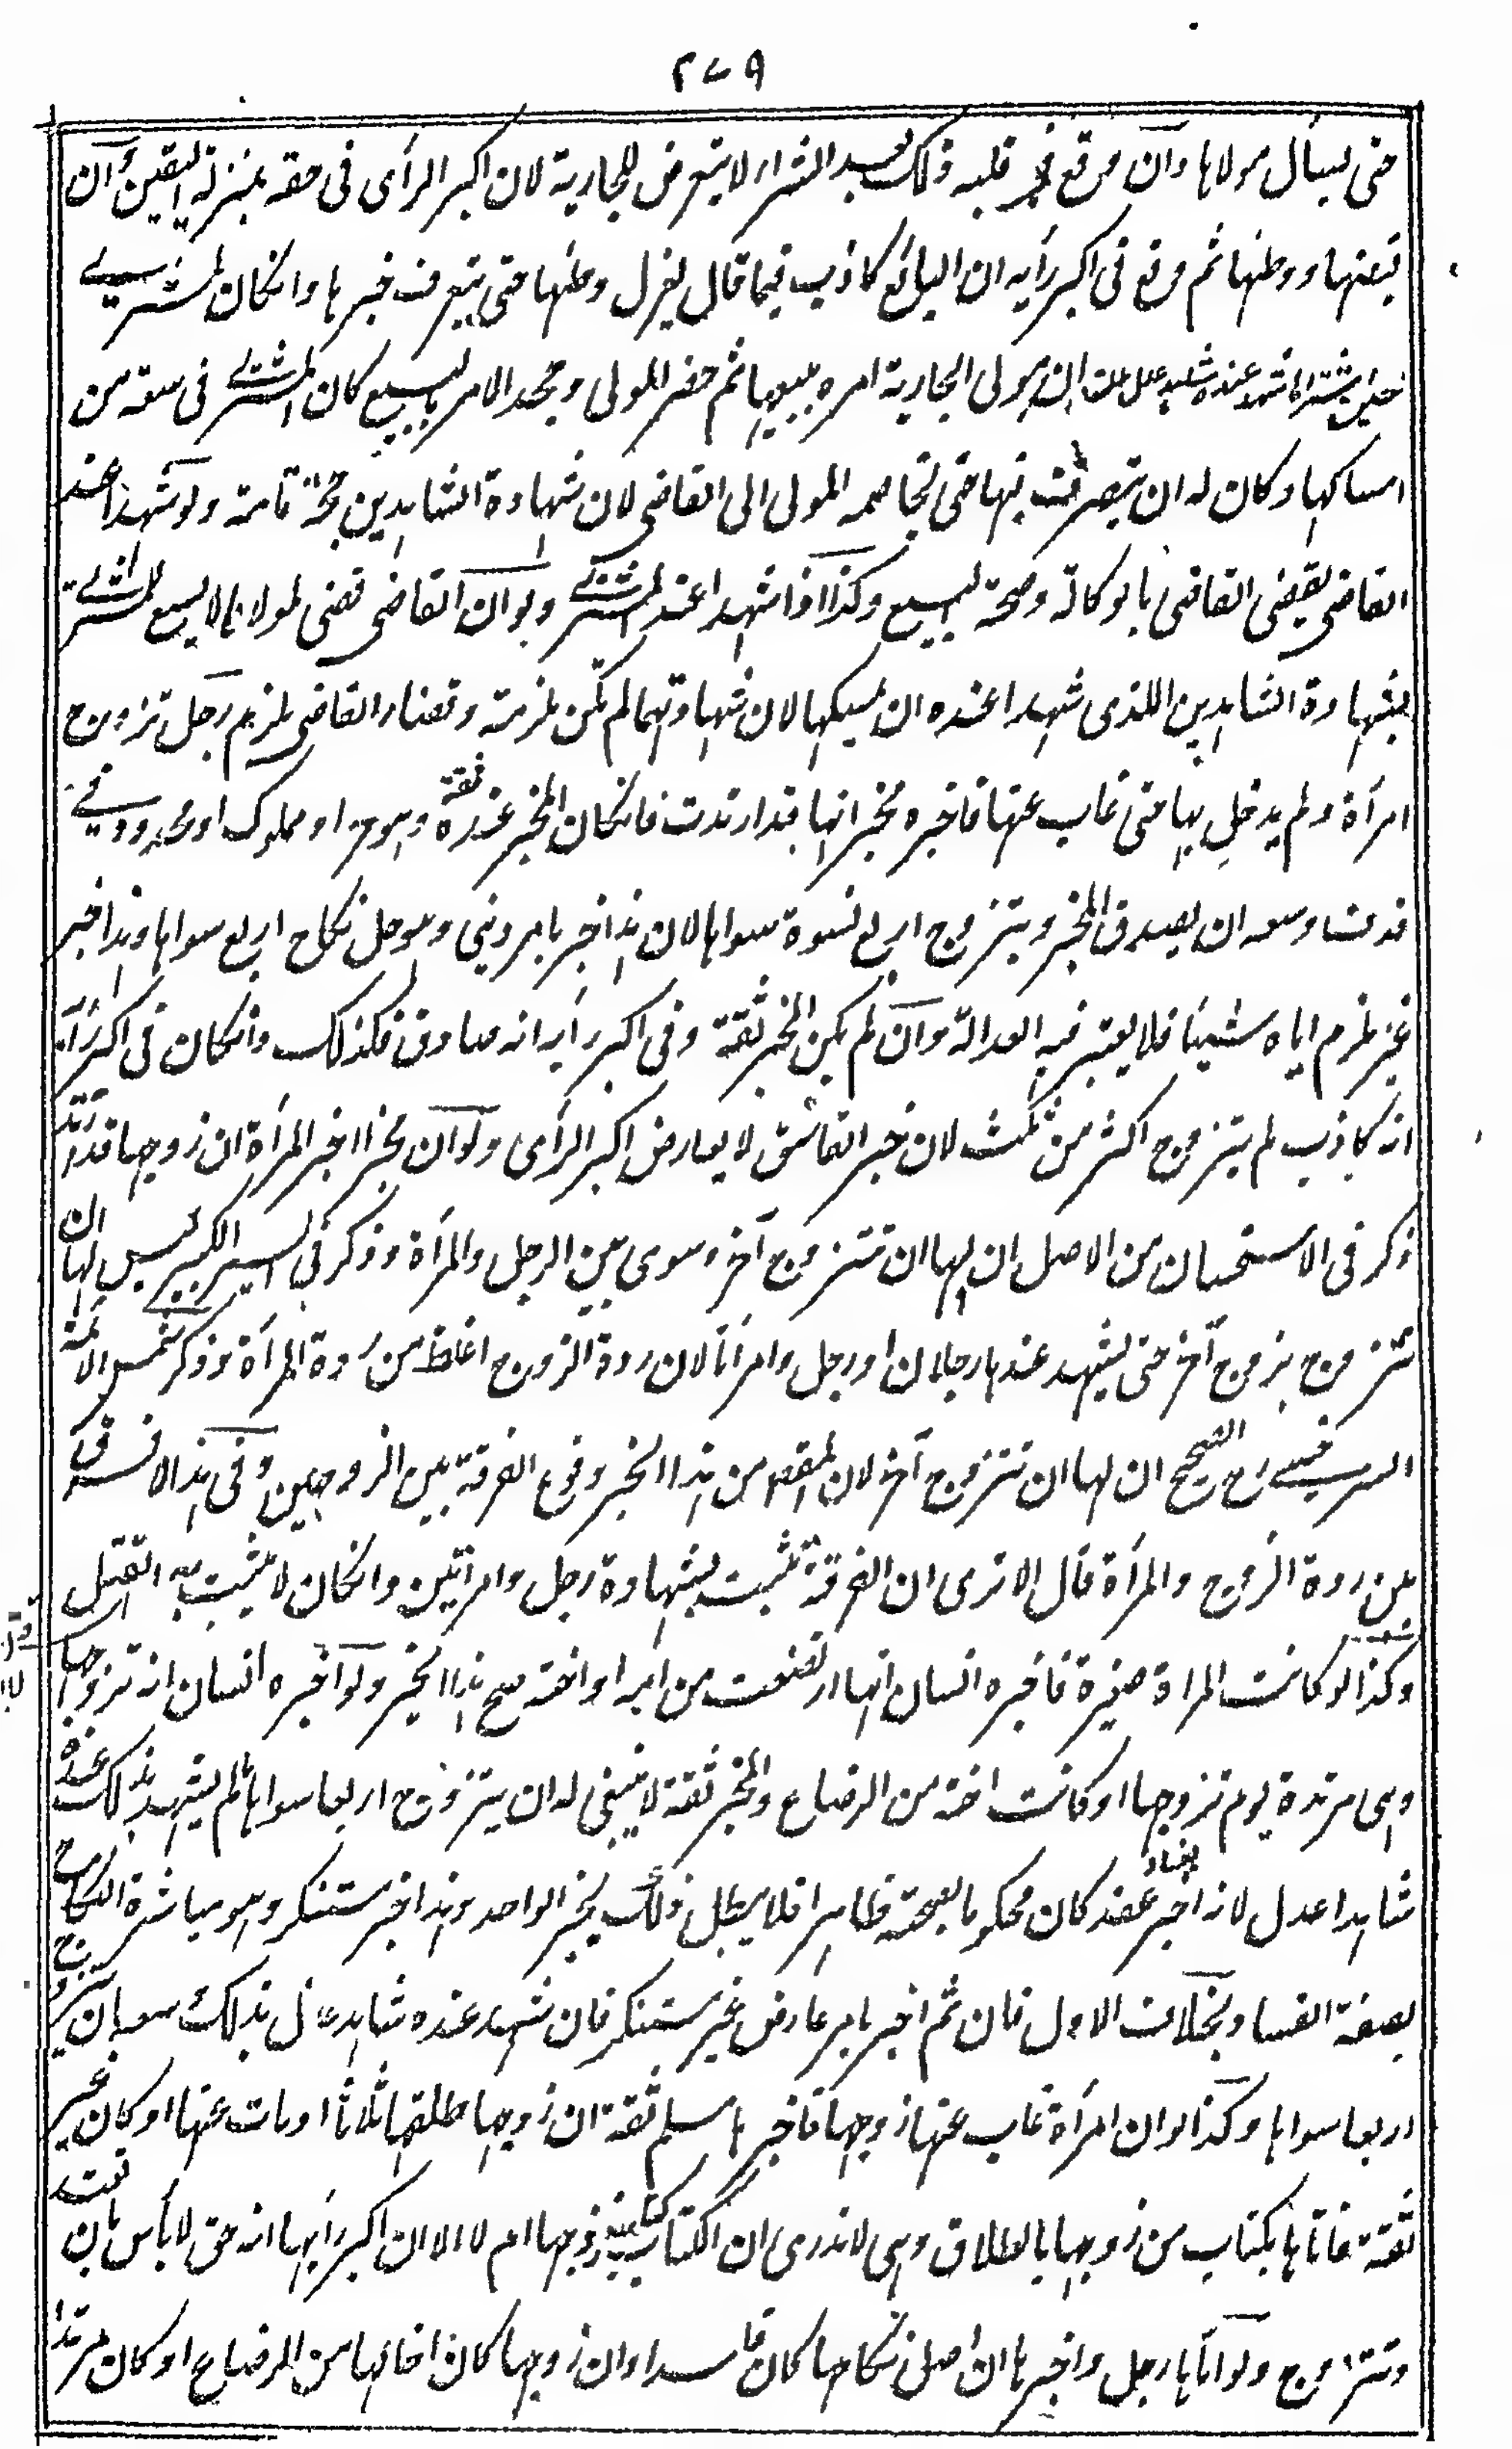 ٢٧٩
حتى يسأل مولاها وان وقع في قلبه ذلك بعد الشراء لا يتعرض للجارية لان اكبر الرأى فى حقه بمنزلة اليقين وان
قبضها ووطئها ثم وقع فى اكبر رأيه ان البائع كاذب فيما قال يعزل وطئها حتى يتعرف خبرها وانكان المشترى
حين اشتراها شهد عنده شاهدا عدل ان مولى الجارية امره ببيعها ثم حضر المولى وجحد الامر بالبيع كان المشترى فى سعة من
امساكها وكان له ان يتصرف فيها حتى يخاصمه المولى الى القاضى لان شهادة الشاهدين حجة تامة ولو شهدا عند
القاضى يقضى القاضى بالوكالة وصحة البيع وكذا اذا شهدا عند المشترى ولو ان القاضى قضى لمولاها لا يسع للمشترى
بشهادة الشاهدين اللذى شهدا عنده ان يمسكها لان شهادتهما لم تكن ملزمة وقضاء القاضى ملزم رجل تزوج
امرأة ولم يدخل بها حتى غاب عنها فاخبره مخبر انها قد ارتدت فانكان المخبر عنده ثقة وهو حر او مملوك او محدود فى
قذف وسعه ان يصدق المخبر ويتزوج اربع نسوة سواها لان هذا خبر بامر دينى وهو حل نكاح اربع سواها وهذا خبر
غير ملزم اياه شيئا فلا يعتبر فيه العدالة وان لم يكن المخبر ثقة وفى اكبر رأيه انه صادق فكذلك وانكان فى اكبر رأيه
انه كاذب لم يتزوج اكثر من ثلث لان خبر الفاسق لا يعارض اكبر الرأى ولو ان مخبرا اخبر المرأة ان زوجها قد ارتد
ذكر فى الاستحسان من الاصل ان لها ان تتزوج آخر وسوى بين الرجل والمرأة وذكر فى السير الكبير ليس لها ان
تتزوج بزوج آخر حتى يشهد عندها رجلان او رجل وامرأتان لان ردة الزوج اغلظ من ردة المرأة وذكر شمس الائمة
السرخسى رح الصحيح ان لها ان تتزوج آخر لان المقصود من هذا الخبر وقوع الفرقة بين الزوجين وفى هذا لا فرق
بين ردة الزوج والمرأة قال الا ترى ان الفرقة تثبت بشهادة رجل وامرأتين وانكان لا يثبت به القتل
وكذا لو كانت المرأة صغيرة فاخبره انسان انها ارتضعت من امه او اخته صح هذا الخبر ولو اخبره انسان انه تزوجها
وهى مرتدة يوم تزوجها او كانت اخته من الرضاع والمخبر ثقة لا ينبغى له ان يتزوج اربعا سواها مالم يشهد بذلك عنده
شاهدا عدل لانه اخبر بفساد عقد كان محكوما بالصحة ظاهرا فلا يبطل ذلك بخبر الواحد وهذا خبر مستنكر وهو مباشرة النكاح
بصفة الفساد وبخلاف الاول فان ثم اخبر بامر عارض غير مستنكر فان شهد عنده شاهدا عدل بذلك وسعه ان يتزوج
اربعا سواها وكذا لو ان امرأة غاب عنها زوجها فاخبرها مسلم ثقة ان زوجها طلقها ثلاثا او مات عنها او كان غير
ثقة فاتاها بكتاب من زوجها بالطلاق وهى لا تدرى ان الكتاب كتاب زوجها ام لا الا ان اكبر رأيها انه حق لا بأس بان تعتد
وتتزوج ولو اتاها رجل واخبرها ان اصل نكاحها كان فاسدا وان زوجها كان اخا لها من الرضاع او كان مرتدا